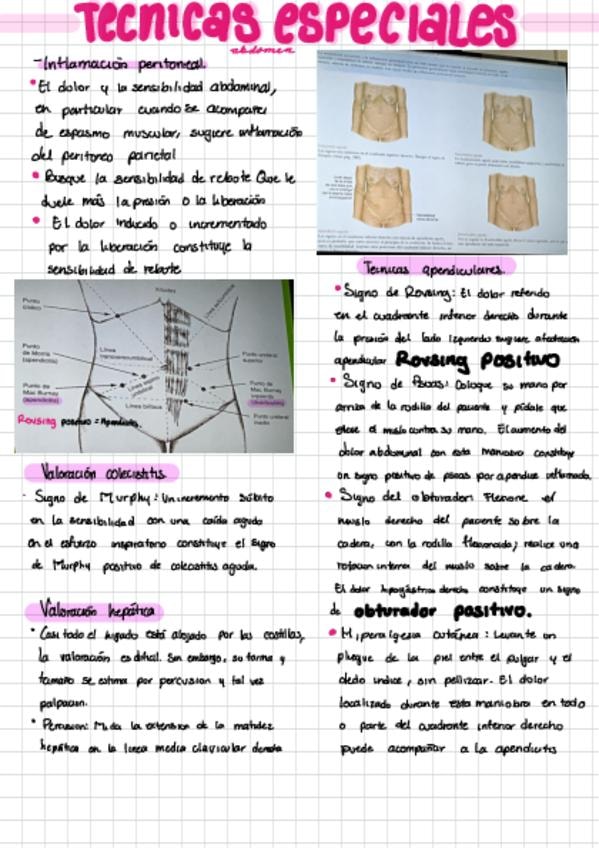 TECNICAS ESPECIALES
abdomen
- Inflamación peritoneal.
• El dolor y la sensibilidad abdominal,
en particular cuando se acompañe
de espasmo muscular, sugiere inflamación
del peritoneo parietal
• Busque la sensibilidad de rebote Que le
duele más la presión o la liberación
• El dolor inducido o incrementado
por la liberación constituye la
sensibilidad de rebote
Punto
cístico
Punto
de Morris
(apendicitis)
Punto de
Mac Burney
(apendicitis)
Línea
transversoumbilical
Línea bilíaca
Punto ureteral
superior
Punto de
Mac Burney
izquierdo
Punto ureteral
medio
Rovsing positivo = Apendicitis.
Valoración colecistitis
· Signo de Murphy: Un incremento súbito
en la sensibilidad con una caída aguda
en el esfuerzo inspiratorio constituye el signo
de Murphy positivo de colecistitis aguda.
Valoración hepática
• Casi todo el hígado está alojado por las costillas,
la valoración es difícil. Sin embargo, su forma y
tamaño se estima por percusión y tal vez
palpación.
• Percusión: Mida la extensión de la matidez
hepática en la línea media clavicular derecha
Tecnicas apendiculares.
• Signo de Rovsing: El dolor referido
en el cuadrante inferior derecho durante
la presión del lado izquierdo sugiere afectación
apendicular Rovsing positivo
• Signo de Psoas: Coloque su mano por
arriba de la rodilla del paciente y pídale que
eleve el muslo contra su mano. El aumento del
dolor abdominal con esta maniobra constituye
un signo positivo de psoas por apendice inflamada.
• Signo del obturador: Flexione el
muslo derecho del paciente sobre la
cadera, con la rodilla flexionada; realice una
rotacion interna del muslo sobre la cadera.
El dolor hipogástrico derecho constituye un signo
de obturador positivo.
• Hiperalgesia cutánea: Levante un
pliegue de la piel entre el pulgar y el
dedo indice, sin pellizcar. El dolor
localizado durante esta maniobra en todo
o parte del cuadrante inferior derecho
puede acompañar a la apendicitis